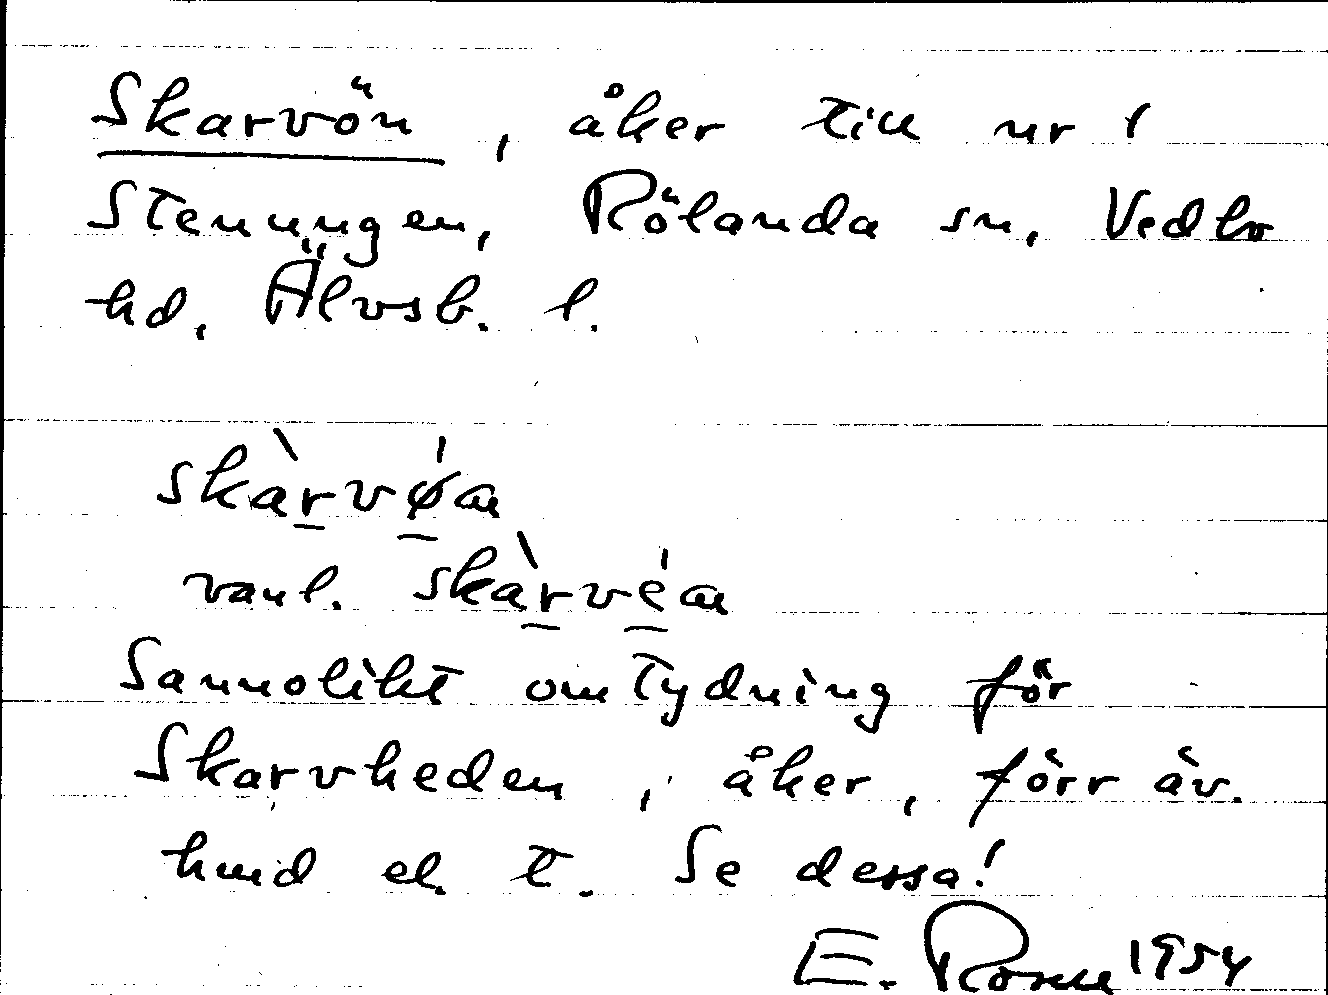 Skarvön, åker till nr 1
Stenungen, Rölanda sn, Vedbo
hd, Älvsb. l.
skàrvǿn
vanl. skàrvén
Sannolikt omtydning för
Skarvheden, åker, förr äv.
hmd el. t. Se dessa!
E. Rosne 1954